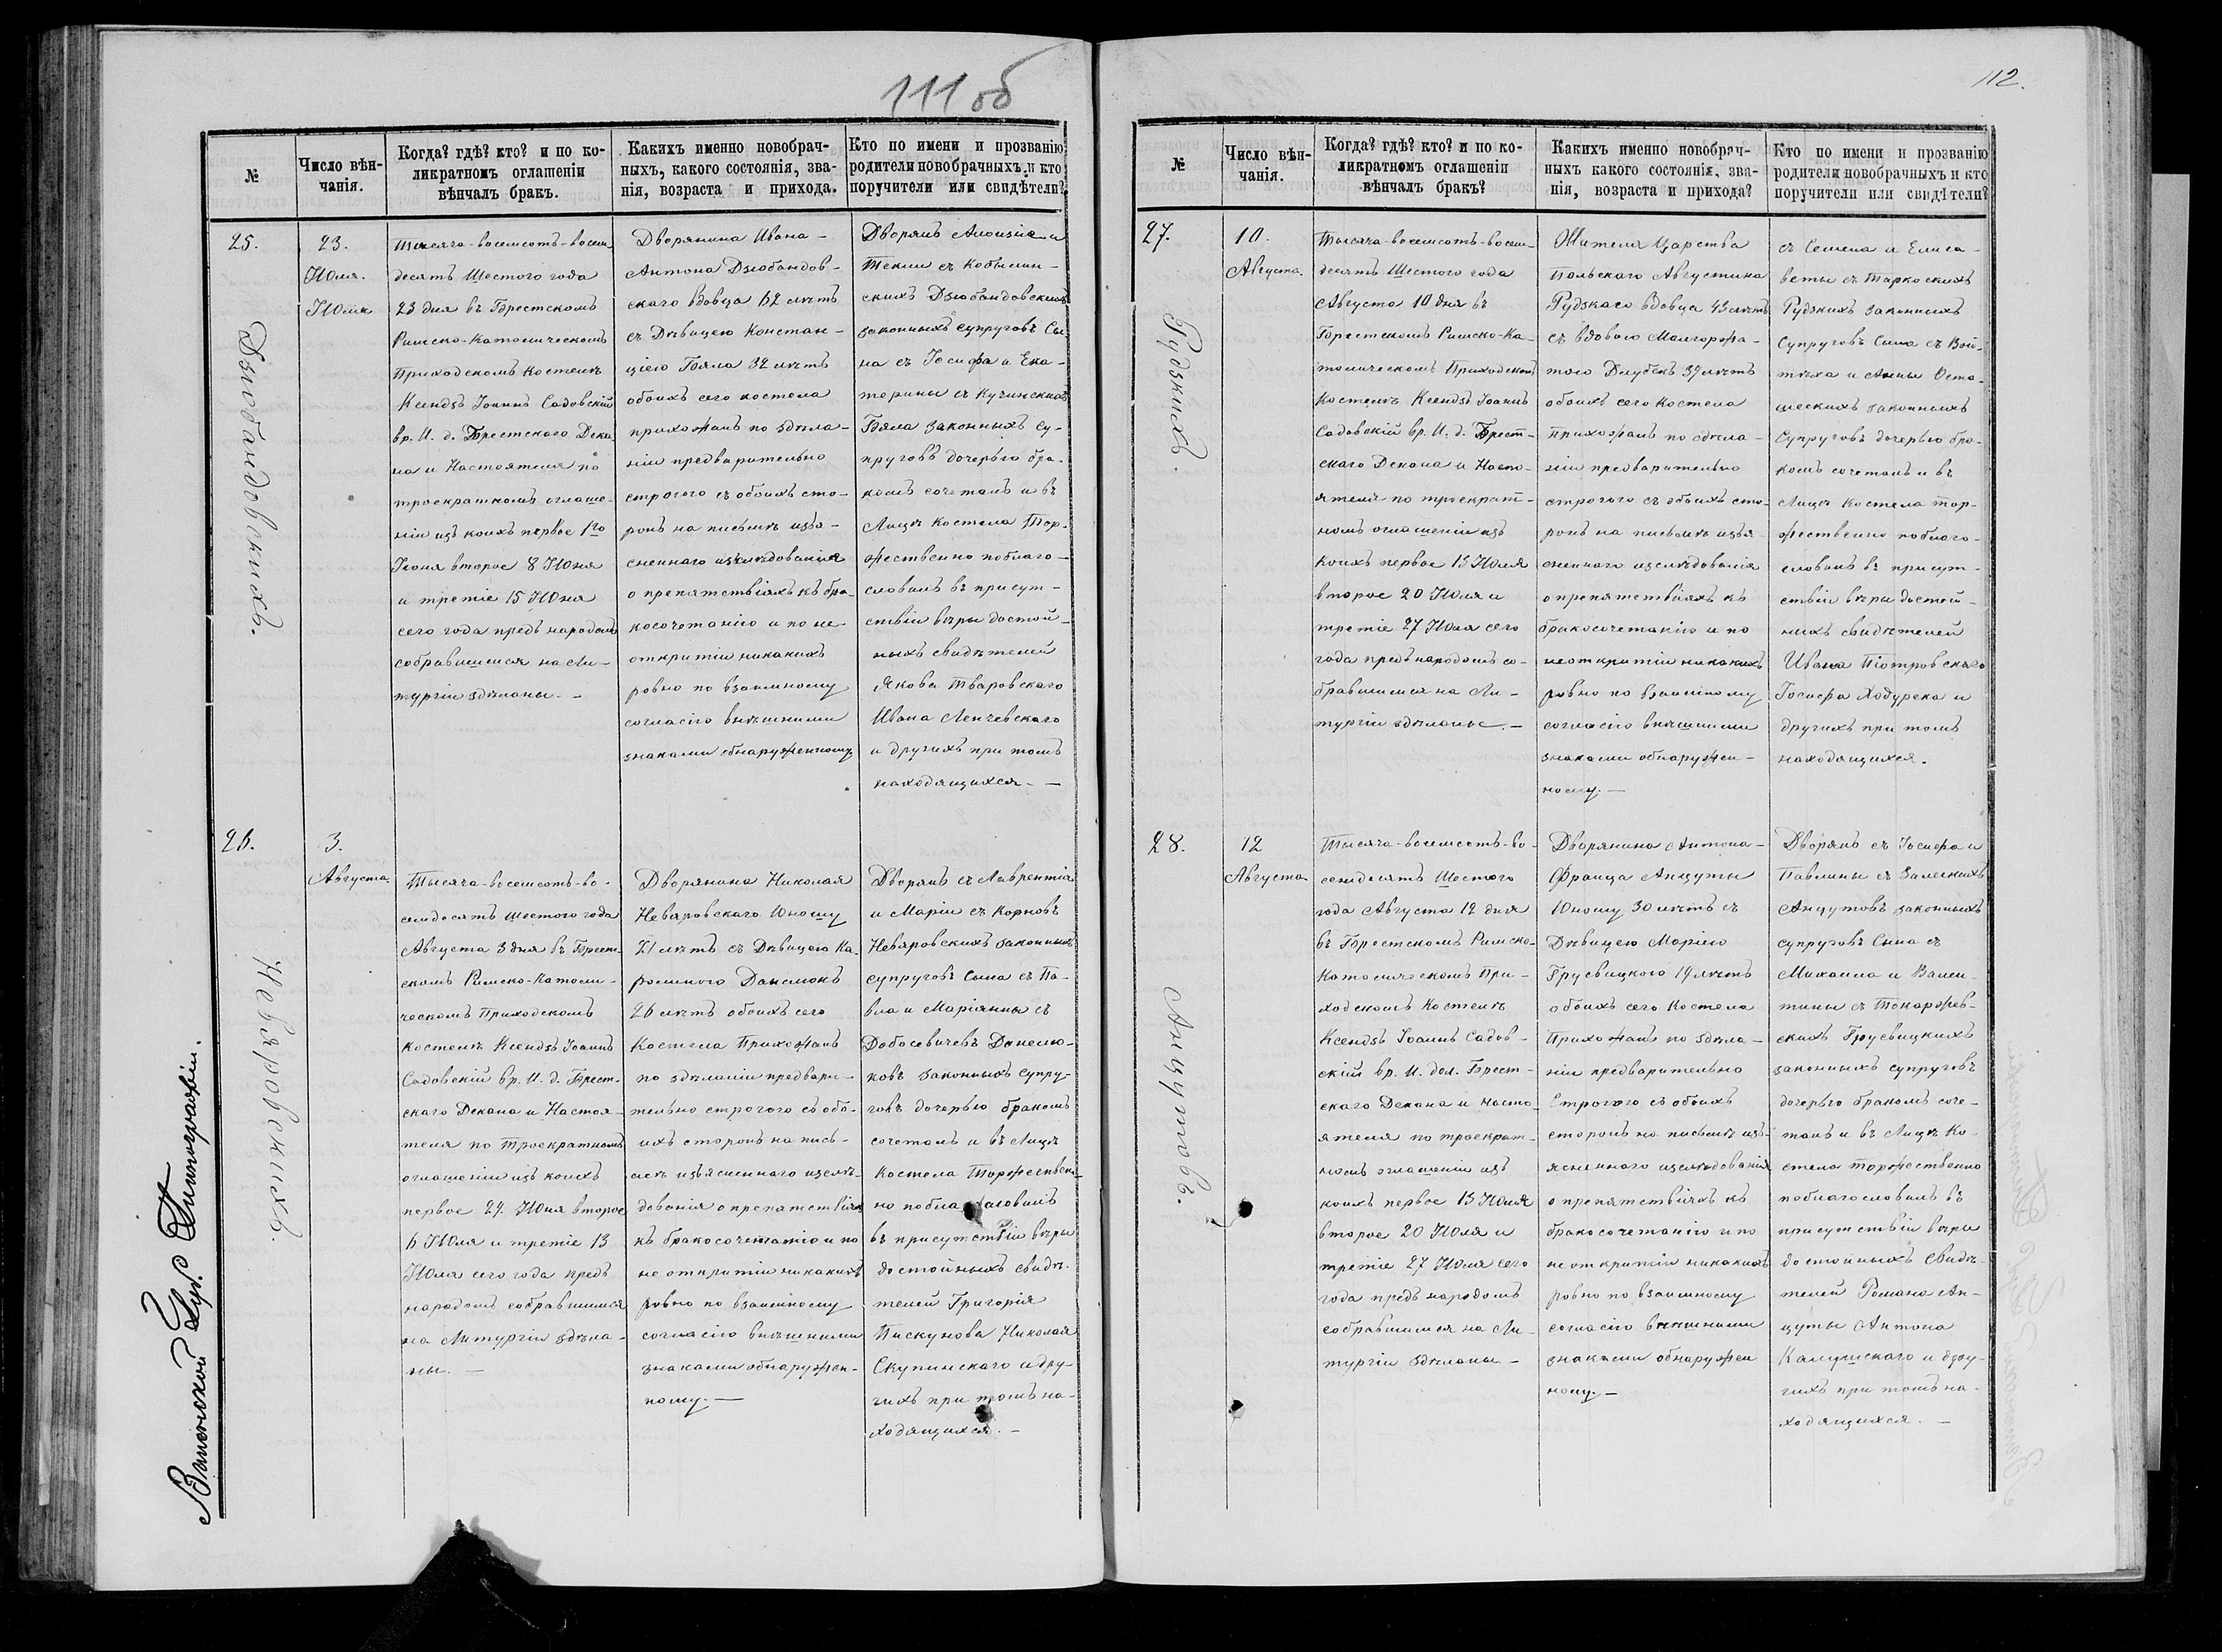 111 об
№
Число вѣн-
чанія.
Когда? гдѣ? кто? и по ко-
ликратномъ оглашеніи
вѣнчалъ бракъ.
Какихъ именно новобрач-
ныхъ, какого состоянія, зва-
нія, возраста и прихода.
Кто по имени и прозванію
родители новобрачныхъ и кто
поручители или свидѣтели?
25.
Дзюбандовскихъ.
23.
Юлія.
Юля
Тысяча-восемсотъ-восем-
десятъ Шестого года
23 дня въ Брестскомъ
Римско-Католическомъ
Приходскомъ Костелѣ
Ксендзъ Іоаннъ Садовскій
вр. И. д. Брестского Дека-
на и Настоятеля по
троекратномъ оглаше-
ніи изъ коихъ первое 1го
Іюня второе 8 Юня
и третіе 15 Юня
сего года предъ народомъ
собравшимся на Ли-
тургіи здѣланы. —
Дворянина Ивана-
Антона Дзюбандов-
скаго вдовца 62 лѣтъ
съ Дѣвицею Констан-
ціею Бяла 32 лѣтъ
обоихъ сего костела
прихожанъ по здѣла-
ніи предварительно
строгого съ обоихъ сто-
ронъ на письмѣ изъя-
сненного изслѣдованія
о препятствіяхъ къ бра-
косочетанію и по не-
открытіи никакихъ
ровно по взаимному
согласію внѣшними
знаками обнаруженному
Дворянъ Алоизія и
Теклы съ Кобылин-
скихъ Дзюбандовскихъ
законныхъ супруговъ Сы-
на съ Іосифа и Ека-
терины съ Кучинскихъ
Бяла законныхъ су-
пруговъ дочерью бра-
комъ сочеталъ и въ
Лицѣ Костела Тор-
жественно поблаго-
словилъ въ присут-
ствіи вѣры достой-
ныхъ свидѣтелей
Якова Тваровскаго
Ивана Ленчевскаго
и другихъ при томъ
находящихся. —
26.
Невяровскихъ.
3.
Августа.
Тысяча-восемсотъ-во-
семдесятъ шестого года
Августа 3 дня въ Брест-
скомъ Римско-Католи-
ческомъ Приходскомъ
Костелѣ Ксендзъ Іоаннъ
Садовскій вр. И. д. Брест-
скаго Декана и Настоя-
теля по Троекратномъ
оглашеніи изъ коихъ
первое 29. Юня второе
6 Юля и третіе 13
Юля сего года предъ
народомъ собравшимся
на Литургіи здѣла-
ны. —
Дворянина Николая
Невяровскаго Юношу
21 лѣтъ съ Дѣвицею Ка-
ролиною Данелюкъ
26 лѣтъ обоихъ сего
Костела Прихожанъ
по здѣланіи предвари-
тельно строгого съ обо-
ихъ сторонъ на пись-
мѣ изъясненного изслѣ-
дованія о препятствіяхъ
къ бракосочетанію и по
не открытіи никакихъ
ровно по взаимному
согласію внѣшними
знаками обнаружен-
ному. —
Дворянъ съ Лаврентія
и Маріи съ Корновъ
Невяровскихъ законныхъ
супруговъ Сына съ Па-
вла и Маріянны съ
Добосевичевъ Данелю-
ковъ законныхъ супру-
говъ дочерью бракомъ
сочеталъ и въ Лицѣ
Костела Торжествен-
но поблагословилъ
въ присутствіи вѣры
достойныхъ свидѣ-
телей Григорія
Пискунова Николая
Скупинскаго и дру-
гихъ при томъ на-
ходящихся. —
Виленской Губ. Типографіи.
112.
№
Число вѣн-
чанія.
Когда? гдѣ? кто? и по ко-
ликратномъ оглашеніи
вѣнчалъ бракъ?
Какихъ именно новобрач-
ныхъ какого состоянія, зва-
нія, возраста и прихода?
Кто по имени и прозванію
родители новобрачныхъ и кто
поручители или свидѣтели?
27.
Рудзкихъ.
10.
Августа.
Тысяча-восемсотъ-восем-
десятъ Шестого года
Августа 10 дня въ
Брестскомъ Римско-Ка-
толическомъ Приходскомъ
Костелѣ Ксендзъ Іоаннъ
Садовскій вр. И. д. Брест-
скаго Декана и Насто-
ятеля по троекрат-
номъ оглашеніи изъ
коихъ первое 13 Юля
второе 20 Юля и
третіе 27 Юля сего
года предъ народомъ со-
бравшимся на Ли-
тургіи здѣланы. —
Жителя Царства
Польскаго Августина
Рудзкаго вдовца 43 лѣтъ
съ вдовою Малгоржа-
тою Длубекъ 39 лѣтъ
обоихъ сего Костела
Прихожанъ по сдѣла-
ніи предварительно
строгого съ обоихъ сто-
ронъ на письмѣ изъя
сненного изслѣдованія
о препятствіяхъ къ
бракосочетанію и по
неоткрытіи никакихъ
ровно по взаимному
согласію внѣшними
знаками обнаружен-
ному. —
съ Семена и Елиса-
веты съ Тарковскихъ
Рудзкихъ законныхъ
Супруговъ Сына съ Вой-
тѣха и Анны Оста-
шескихъ законныхъ
Супруговъ дочерью бра-
комъ сочеталъ и въ
Лицѣ Костела тор-
жественно поблаго-
словилъ въ присут-
ствіи вѣры достой-
ныхъ свидѣтелей
Ивана Піотровскаго
Іосифа Ходурека и
другихъ при томъ
находящихся.
28.
Анцутовъ.
12
Августа
Тысяча-восемсотъ-во-
семдесятъ Шестого
года Августа 12 дня
въ Брестскомъ Римско-
Католическомъ При-
ходскомъ Костелѣ
Ксендзъ Іоаннъ Садов-
скій вр. И. дол. Брест-
скаго Декана и насто-
ятеля по троекрат-
номъ оглашеніи изъ
коихъ первое 13 Юля
второе 20 Юля и
третіе 27 Юля сего
года предъ народомъ
собравшимся на Ли-
тургіи здѣланы —
Дворянина Антона-
Франца Анцуты
Юношу 30 лѣтъ съ
Дѣвицею Маріею
Грусвицкою 19 лѣтъ
обоихъ сего Костела
Прихожанъ по здѣла-
ніи предварительно
Строгого съ обоихъ
сторонъ на письмѣ изъ-
ясненного изслѣдованія
о препятствіяхъ къ
бракосочетанію и по
неоткрытіи никакихъ
ровно по взаимному
согласію внѣшними
знаками обнаружен
ному. —
Дворянъ съ Іосифа и
Павлины съ Залескихъ
Анцутовъ законныхъ
супруговъ Сына съ
Михаила и Вален-
тины съ Токаржев-
скихъ Грусвицкихъ
законныхъ супруговъ
дочерью бракомъ соче-
талъ и въ Лицѣ Ко-
стела торжественно
поблагословилъ въ
присутствіи вѣры
достойныхъ Свидѣ-
телей Романа Ан-
цуты Антона
Калушскаго и дру-
гихъ при томъ на-
ходящихся. —